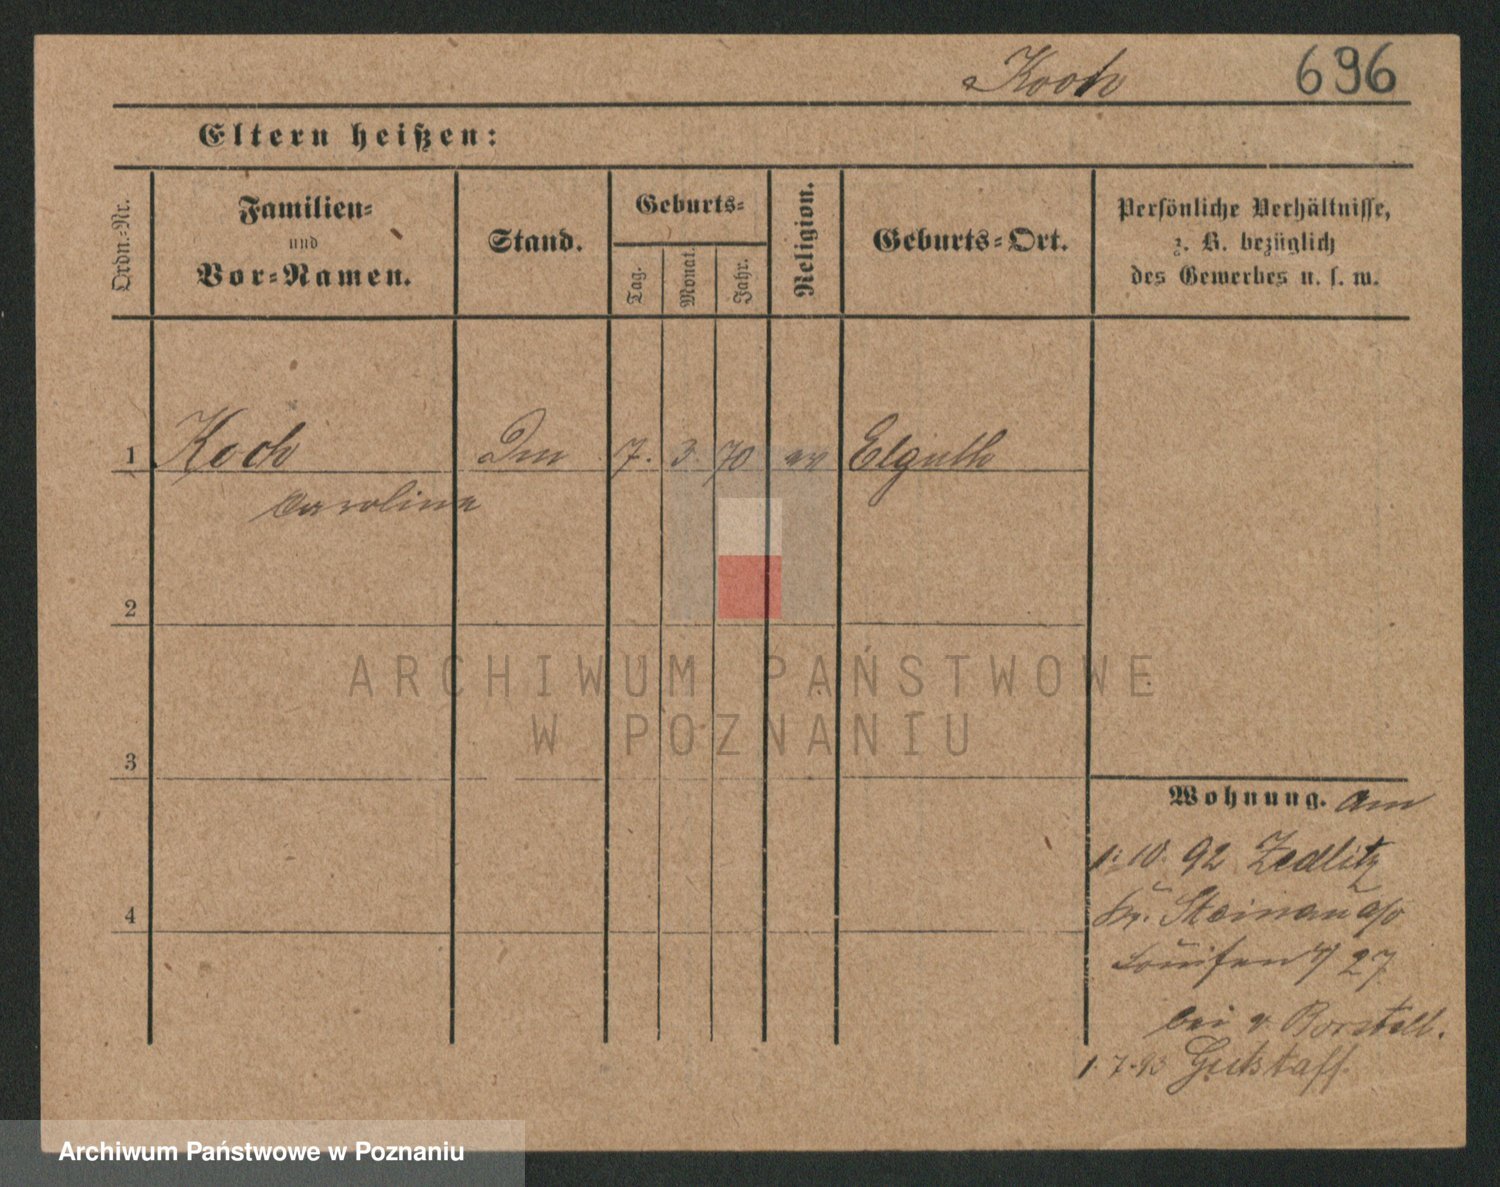 Koch 696
Eltern heißen:
Ordn.-Nr.
Familien-
und
Vor-Namen.
Stand.
Geburts-
Tag.
Monat.
Jahr.
Religion.
Geburts-Ort.
Persönliche Verhältnisse,
z. B. bezüglich
des Gewerbes u. s. w.
1 Koch 7. 3. 70 ev Elguth
Caroline
2
3
4
Wohnung. am
1. 10. 92 Zedlitz
Kr. Steinau a/o
Louisen 27
bei v Borstell.
1. 7. 93 Gutstaff
ARCHIWUM PAŃSTWOWE
W POZNANIU
Archiwum Państwowe w Poznaniu